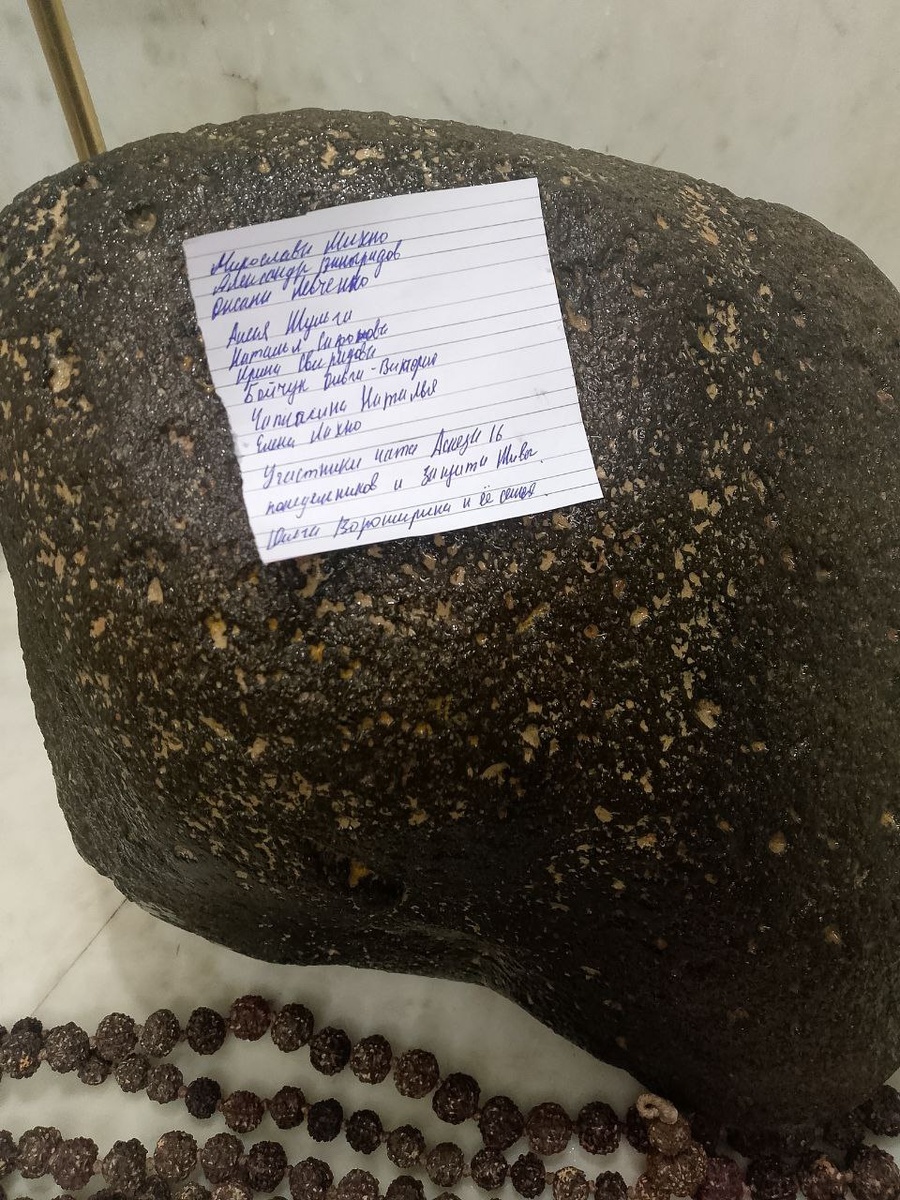 Мирослава Михно
Александр Виноградов
Оксана Левченко
Алеся Шульга
Наталья
Ирина Свиридова
Бойчук Ольга-Виктория
Наталья
Елена Махно
Участники чата Аскези 16
понедельников и Защита Шивы.
Ольга Вороширина и её семья.